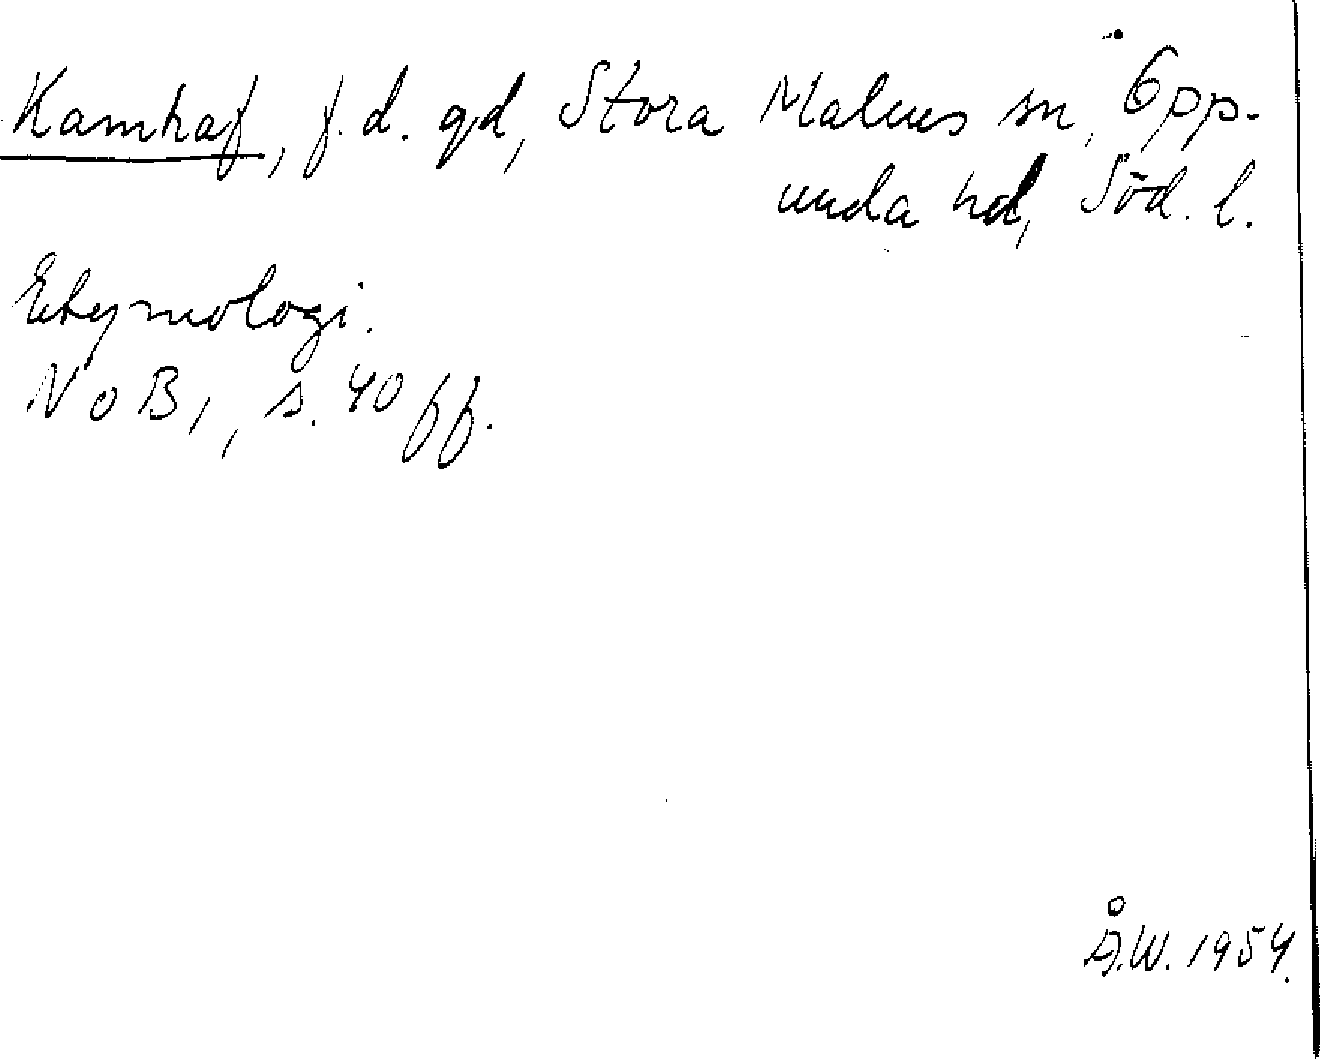 Kamhaf, f.d. gd, Stora Malms sn, Öpp-
unda hd, Söd. l.
Etymologi.
NoB 1, s. 40 ff.
Å.W. 1954.